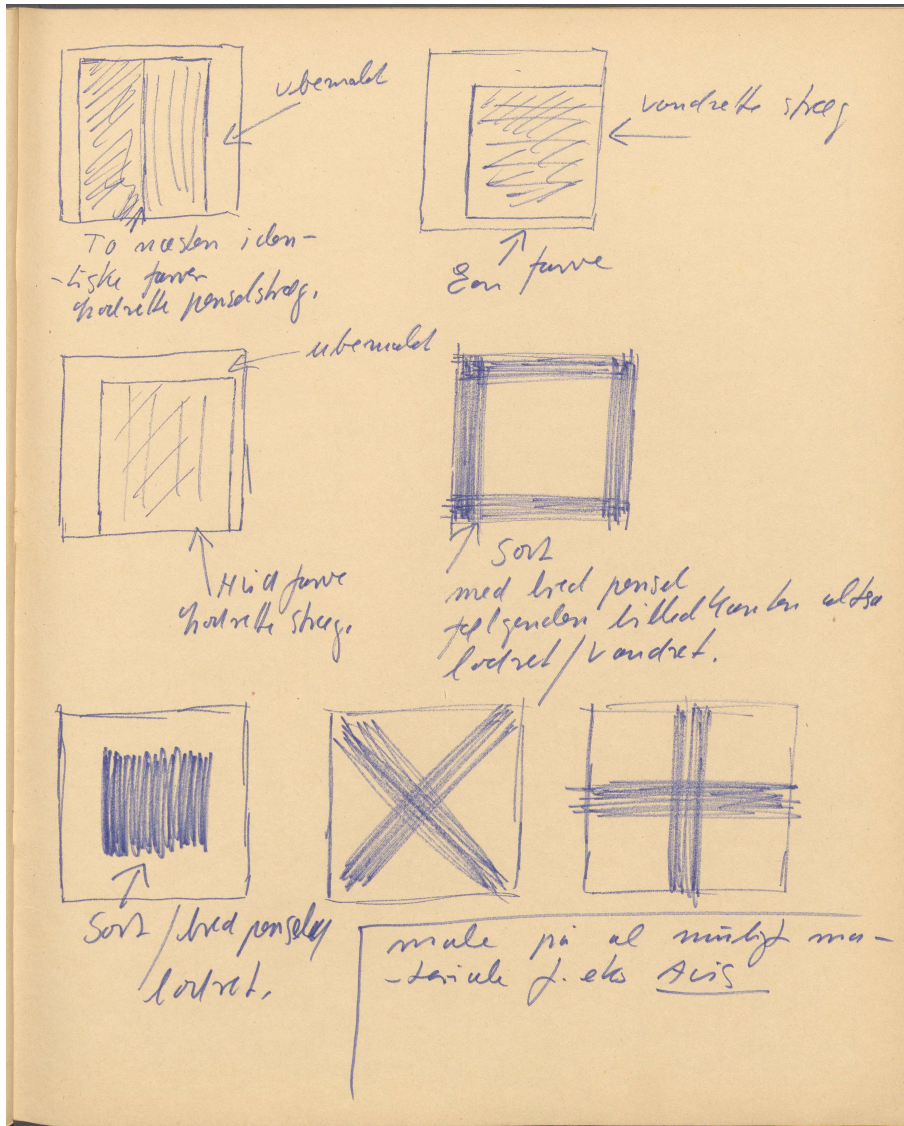 ubemalt
vandrette strøg
To næsten iden-
-tiske farver
lodrette penselstrøg.
Een farve
ubemalt
Hud farve
lodrette strøg.
Sort
med bred pensel
følgende billedkanten altså
lodret/vandret.
Sort / bred pensel
lodret.
male på al muligt ma-
-teriale f. eks Avis